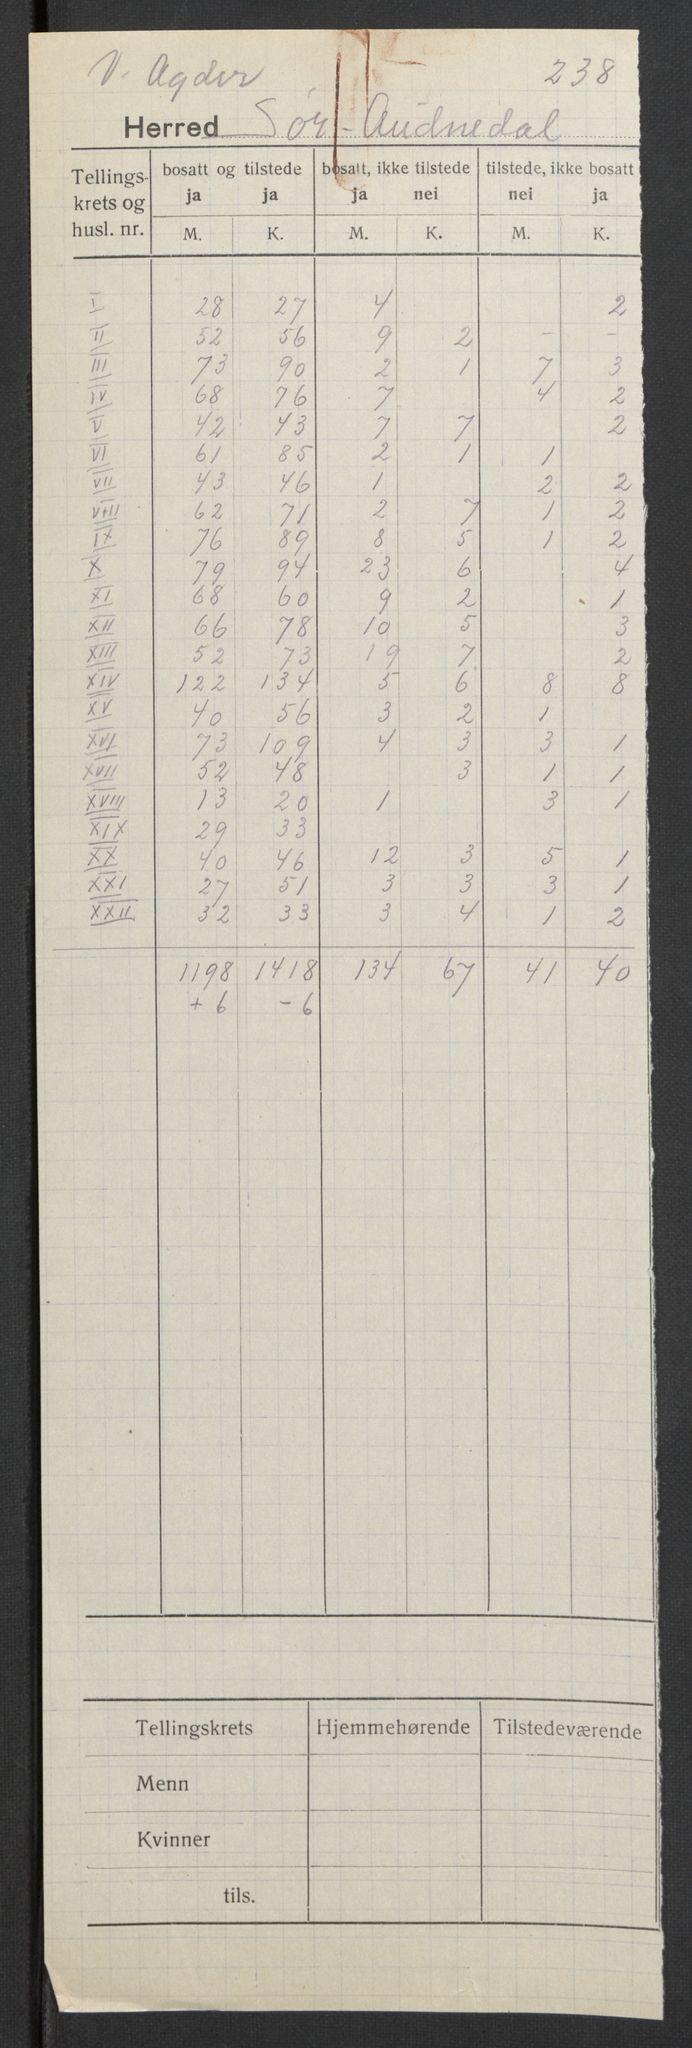 V. Agder 238
Herred Sør-Audnedal
Tellings- bosatt og tilstede bosatt, ikke tilstede tilstede, ikke bosatt
krets og ja ja ja nei nei ja
husl. nr. M. K. M. K. M. K.
I 28 27 4 2
II 52 56 9 2 - -
III 73 90 2 1 7 3
IV 68 76 7 4 2
V 42 43 7 7 2
VI 61 85 2 1 1
VII 43 46 1 2 2
VIII 62 71 2 7 1 2
IX 76 89 8 5 1 2
X 79 94 23 6 4
XI 68 60 9 2 1
XII 66 78 10 5 3
XIII 52 73 19 7 2
XIV 122 134 5 6 8 8
XV 40 56 3 2 1
XVI 73 109 4 3 3 1
XVII 52 48 3 1 1
XVIII 13 20 1 3 1
XIX 29 33
XX 40 46 12 3 5 1
XXI 27 51 3 3 3 1
XXII 32 33 3 4 1 2
1198 1418 134 67 41 40
+ 6 - 6
Tellingskrets Hjemmehørende Tilstedeværende
Menn
Kvinner
tils.